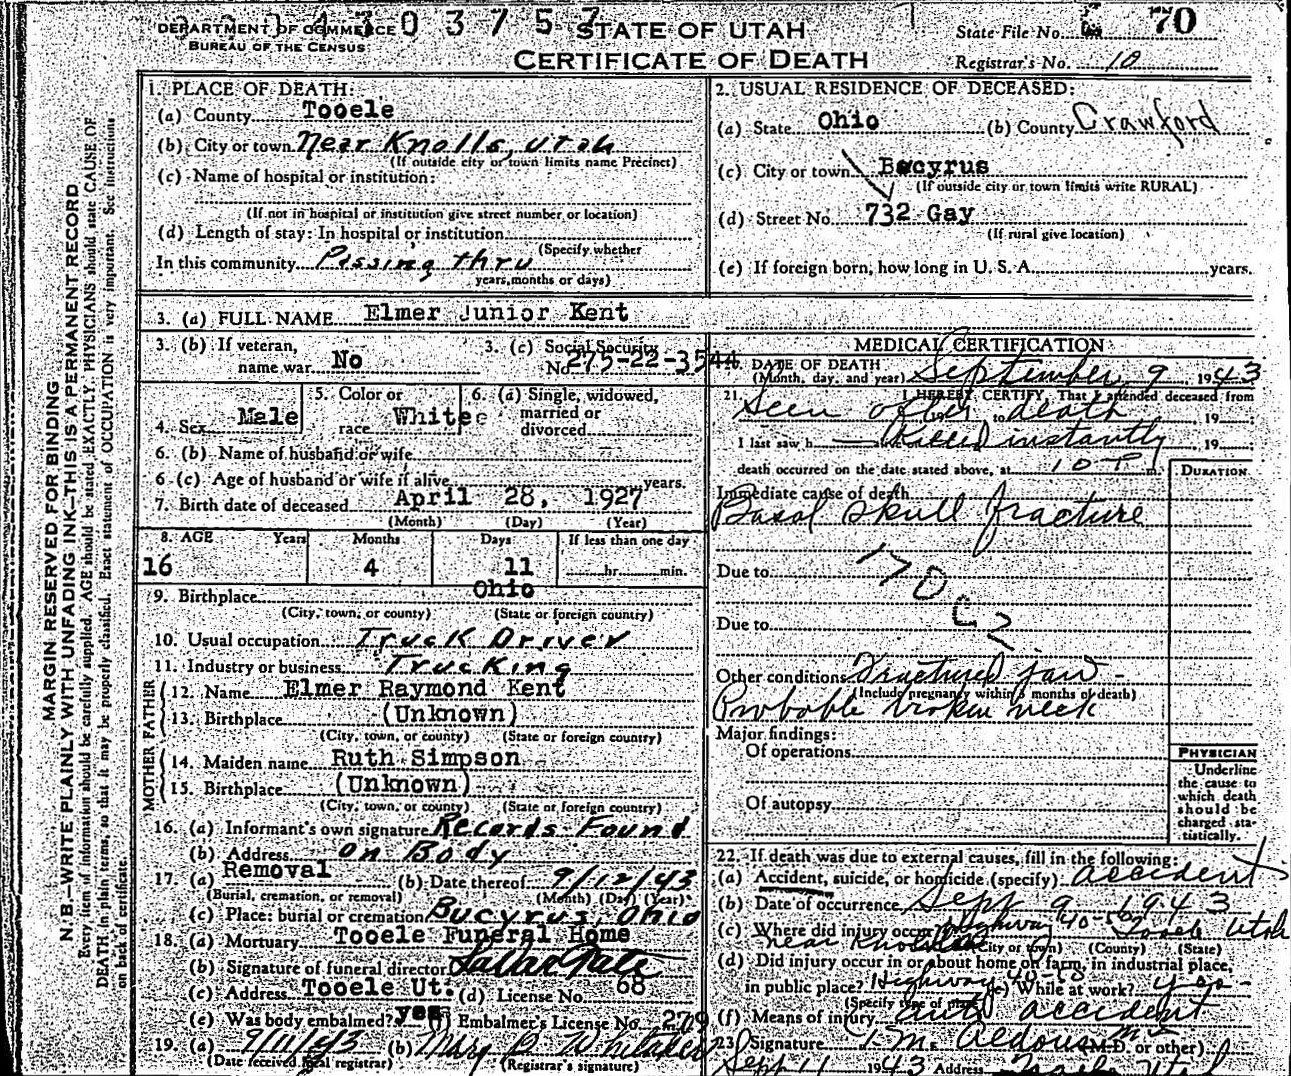 0 3 7 5 7
DEPARTMENT OF COMMERCE
BUREAU OF THE CENSUS
STATE OF UTAH
CERTIFICATE OF DEATH
State File No. 70
Registrar's No. 10
MARGIN RESERVED FOR BINDING
N.B.—WRITE PLAINLY WITH UNFADING INK—THIS IS A PERMANENT RECORD
Every item of information should be carefully supplied. AGE should be stated EXACTLY. PHYSICIANS should state CAUSE OF
DEATH in plain terms, so that it may be properly classified. Exact statement of OCCUPATION is very important. See instructions
on back of certificate.
1. PLACE OF DEATH:
(a) County Tooele
(b) City or town Near Knolls, Utah
(If outside city or town limits name Precinct)
(c) Name of hospital or institution:
(If not in hospital or institution give street number or location)
(d) Length of stay: In hospital or institution
(Specify whether
In this community Passing thru
years, months or days)
2. USUAL RESIDENCE OF DECEASED:
(a) State Ohio (b) County Crawford
(c) City or town Bucyrus
(If outside city or town limits write RURAL)
(d) Street No. 732 Gay
(If rural give location)
(e) If foreign born, how long in U. S. A. years.
3. (a) FULL NAME Elmer Junior Kent
3. (b) If veteran,
name war No
3. (c) Social Security
No. 275-22-3544
4. Sex Male
5. Color or
race White
6. (a) Single, widowed,
married or
divorced
6. (b) Name of husband or wife
6 (c) Age of husband or wife if alive years.
7. Birth date of deceased April 28, 1927
(Month) (Day) (Year)
8. AGE Years Months Days If less than one day
16 4 11 hr. min.
9. Birthplace Ohio
(City, town, or county) (State or foreign country)
10. Usual occupation Truck Driver
11. Industry or business Trucking
FATHER
12. Name Elmer Raymond Kent
13. Birthplace (Unknown)
(City, town, or county) (State or foreign country)
MOTHER
14. Maiden name Ruth Simpson
15. Birthplace (Unknown)
(City, town, or county) (State or foreign country)
16. (a) Informant's own signature Records Found
(b) Address on Body
17. (a) Removal (b) Date thereof 9/12/43
(Burial, cremation, or removal) (Month) (Day) (Year)
(c) Place: burial or cremation Bucyrus, Ohio
18. (a) Mortuary Tooele Funeral Home
(b) Signature of funeral director
(c) Address Tooele Ut. (d) License No. 68
(e) Was body embalmed? yes (f) Embalmer's License No. 279
19. (a) 9/11/43 (b) Mary B
(Date received local registrar) (Registrar's signature)
MEDICAL CERTIFICATION
20. DATE OF DEATH
(Month, day, and year) September 9 1943
21. I HEREBY CERTIFY, That I attended deceased from
Seen after death to , 19
I last saw h Killed instantly , 19
death occurred on the date stated above, at 10 P m.
DURATION
Immediate cause of death
Basal skull fracture
Due to
170 C 2
Due to
Other conditions Fractured jaw -
(Include pregnancy within 3 months of death)
Probable broken neck
Major findings:
Of operations
Of autopsy
PHYSICIAN
Underline
the cause to
which death
should be
charged sta-
tistically.
22. If death was due to external causes, fill in the following:
(a) Accident, suicide, or homicide (specify) accident
(b) Date of occurrence Sept 9 1943
(c) Where did injury occur? Highway 40-50 Tooele Utah
near Knolls (City or town) (County) (State)
(d) Did injury occur in or about home on farm, in industrial place,
in public place? Highway 40-50 (e) While at work? yes -
(Specify type of place)
(f) Means of injury auto accident
23. Signature J. M. Aldous (M.D. or other)
Sept 11 1943 Address Tooele Utah